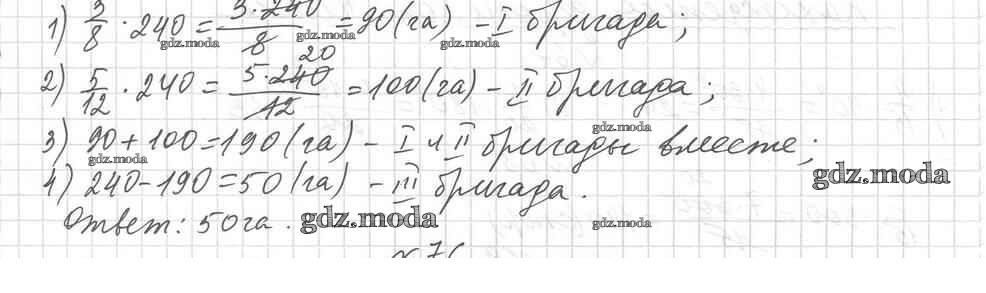 1) 3/8 · 240 = 3·240/8 = 90 (га) – I бригада;
2) 5/12 · 240 = 5·240/12 20 = 100 (га) – II бригада;
3) 90 + 100 = 190 (га) – I и II бригады вместе;
4) 240 – 190 = 50 (га) – III бригада.
Ответ: 50 га.
gdz.moda
gdz.moda
gdz.moda
gdz.moda
gdz.moda
gdz.moda
gdz.moda
gdz.moda